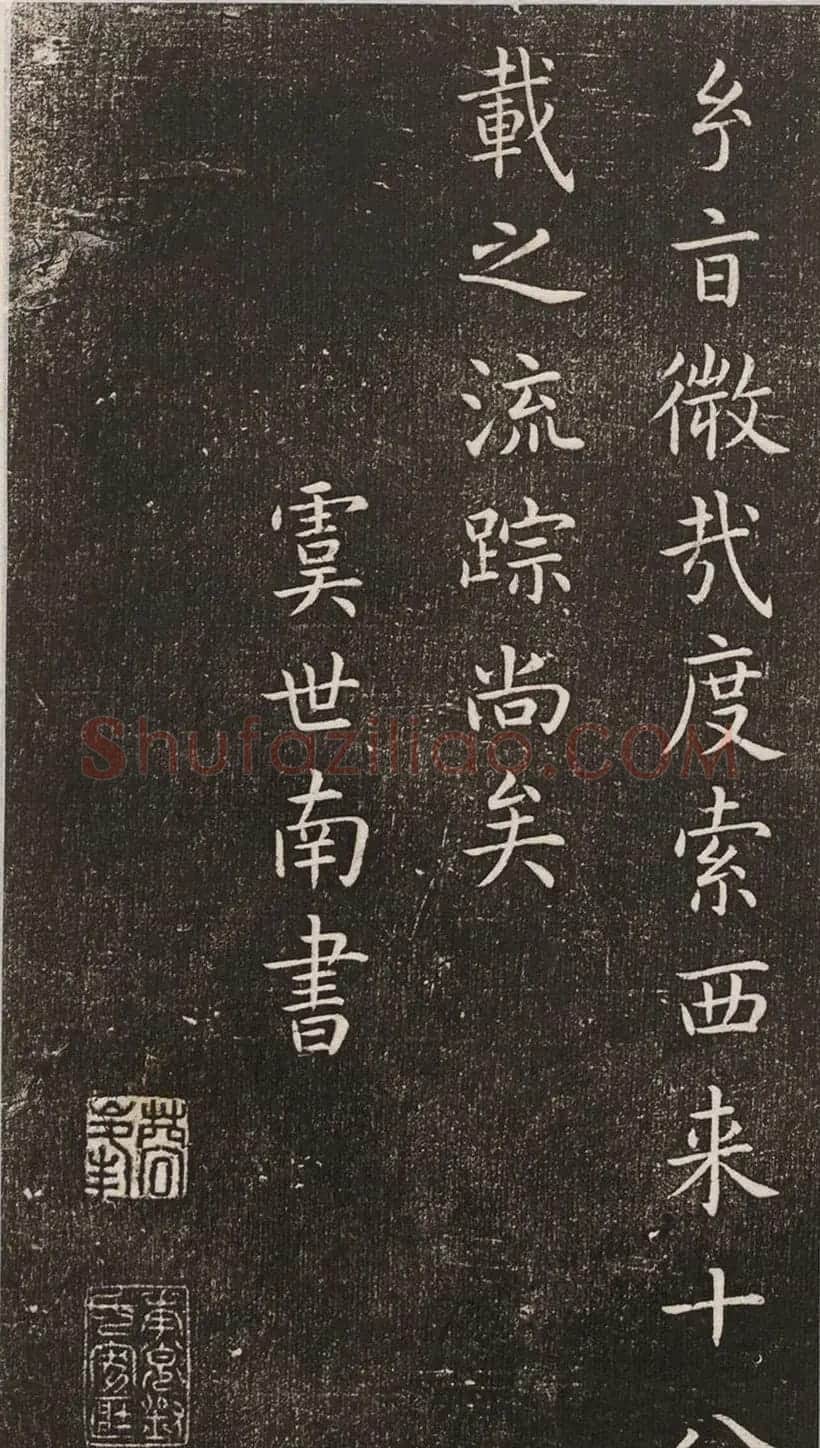 旨微哉度索西来十
載之流踪尚矣
虞世南書
Shufaziliao.COM